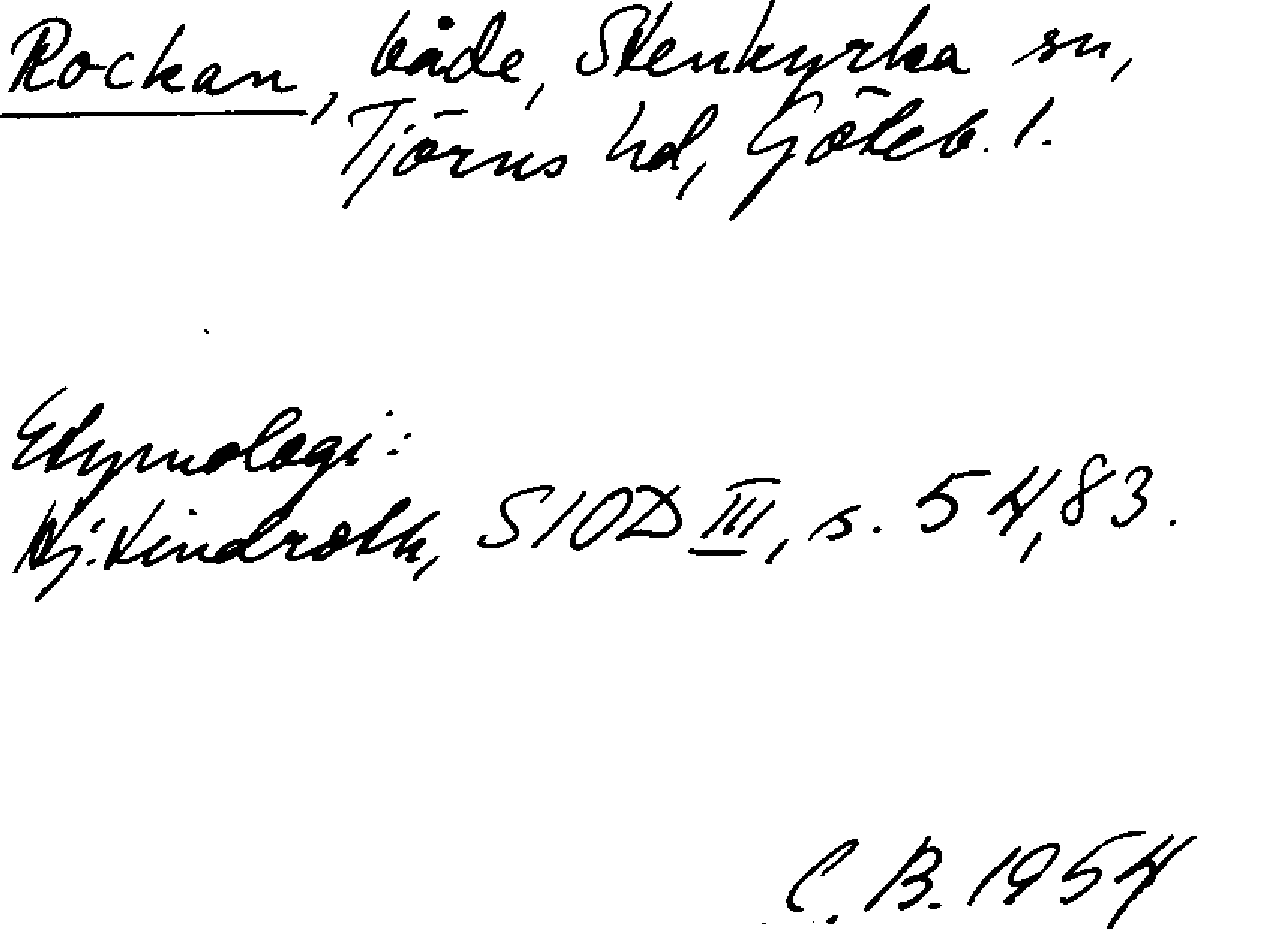 Rockan, både, Stenkyrka sn,
Tjörns hd, Göteb. l.
Etymologi:
Hj. Lindroth, SIOD III, s. 54, 83.
C. B. 1954